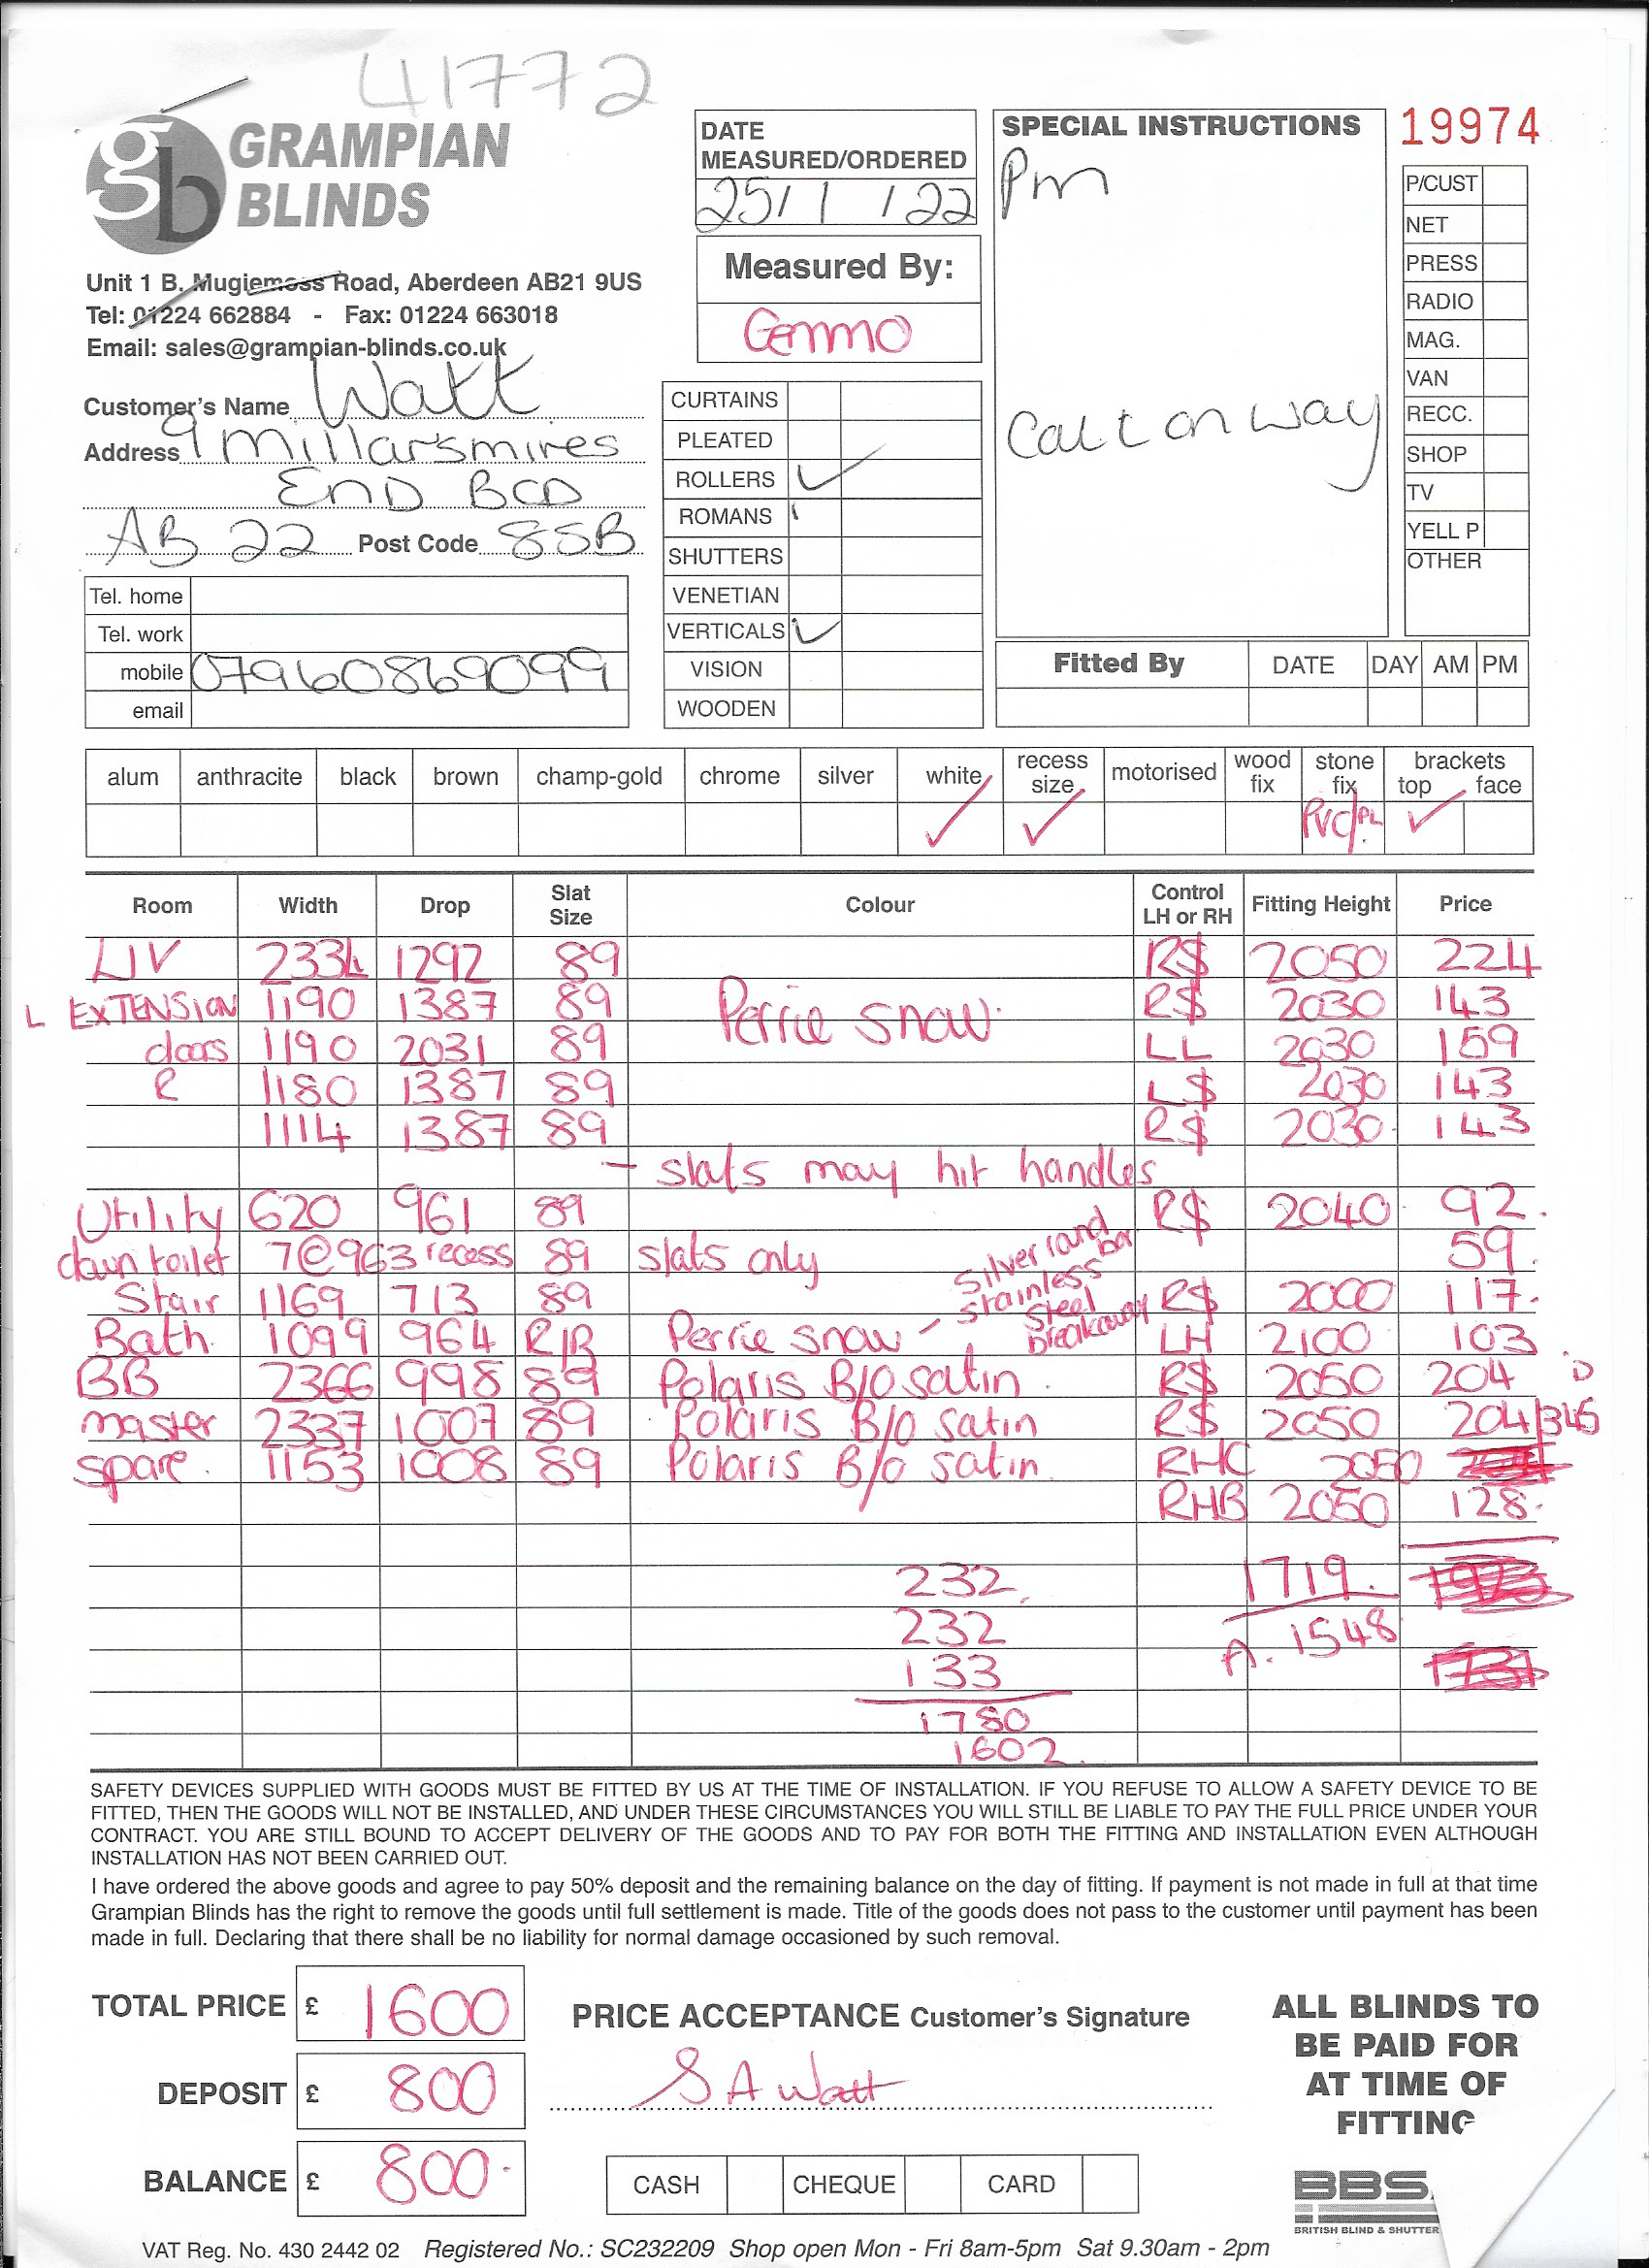 41772
gb GRAMPIAN BLINDS
Unit 1 B, Mugiemoss Road, Aberdeen AB21 9US
Tel: 01224 662884 - Fax: 01224 663018
Email: sales@grampian-blinds.co.uk
Customer's Name Watt
Address 9 Millarsmires
END BCD
AB 22 Post Code 8SB
Tel. home
Tel. work
mobile 07960869099
email
DATE MEASURED/ORDERED
25/1/22
Measured By:
Gemma
CURTAINS
PLEATED
ROLLERS ✓
ROMANS
SHUTTERS
VENETIAN
VERTICALS ✓
VISION
WOODEN
SPECIAL INSTRUCTIONS
Pm
Call on way
19974
P/CUST
NET
PRESS
RADIO
MAG.
VAN
RECC.
SHOP
TV
YELL P
OTHER
Fitted By DATE DAY AM PM
alum anthracite black brown champ-gold chrome silver white recess size motorised wood fix stone fix brackets top face
✓ ✓ PVC/PL ✓
Room Width Drop Slat Size Colour Control LH or RH Fitting Height Price
LIV 2334 1292 89 R$ 2050 224
L EXTENSION 1190 1387 89 Perrie snow R$ 2030 143
doors 1190 2031 89 LL 2030 159
R 1180 1387 89 L$ 2030 143
1114 1387 89 R$ 2030 143
- slats may hit handles
Utility 620 961 89 R$ 2040 92.
down toilet 7@963 recess 89 slats only 59.
Stair 1169 713 89 R$ 2000 117.
Bath. 1099 964 R/B Perrie snow - Silver round bar stainless steel breakaway LH 2100 103.
BB 2366 998 89 Polaris B/O satin. R$ 2050 204 D
master 2337 1007 89 Polaris B/O satin R$ 2050 204/345
spare. 1153 1008 89 Polaris B/o satin. RHC 2050
RHB 2050 128.
232. 1719.
232 A. 1548
133 1731
1780
1602.
SAFETY DEVICES SUPPLIED WITH GOODS MUST BE FITTED BY US AT THE TIME OF INSTALLATION. IF YOU REFUSE TO ALLOW A SAFETY DEVICE TO BE
FITTED, THEN THE GOODS WILL NOT BE INSTALLED, AND UNDER THESE CIRCUMSTANCES YOU WILL STILL BE LIABLE TO PAY THE FULL PRICE UNDER YOUR
CONTRACT. YOU ARE STILL BOUND TO ACCEPT DELIVERY OF THE GOODS AND TO PAY FOR BOTH THE FITTING AND INSTALLATION EVEN ALTHOUGH
INSTALLATION HAS NOT BEEN CARRIED OUT.
I have ordered the above goods and agree to pay 50% deposit and the remaining balance on the day of fitting. If payment is not made in full at that time
Grampian Blinds has the right to remove the goods until full settlement is made. Title of the goods does not pass to the customer until payment has been
made in full. Declaring that there shall be no liability for normal damage occasioned by such removal.
TOTAL PRICE £ 1600
DEPOSIT £ 800
BALANCE £ 800.
PRICE ACCEPTANCE Customer's Signature
S A Watt
CASH CHEQUE CARD
ALL BLINDS TO
BE PAID FOR
AT TIME OF
FITTING
BBS
BRITISH BLIND & SHUTTER
VAT Reg. No. 430 2442 02 Registered No.: SC232209 Shop open Mon - Fri 8am-5pm Sat 9.30am - 2pm